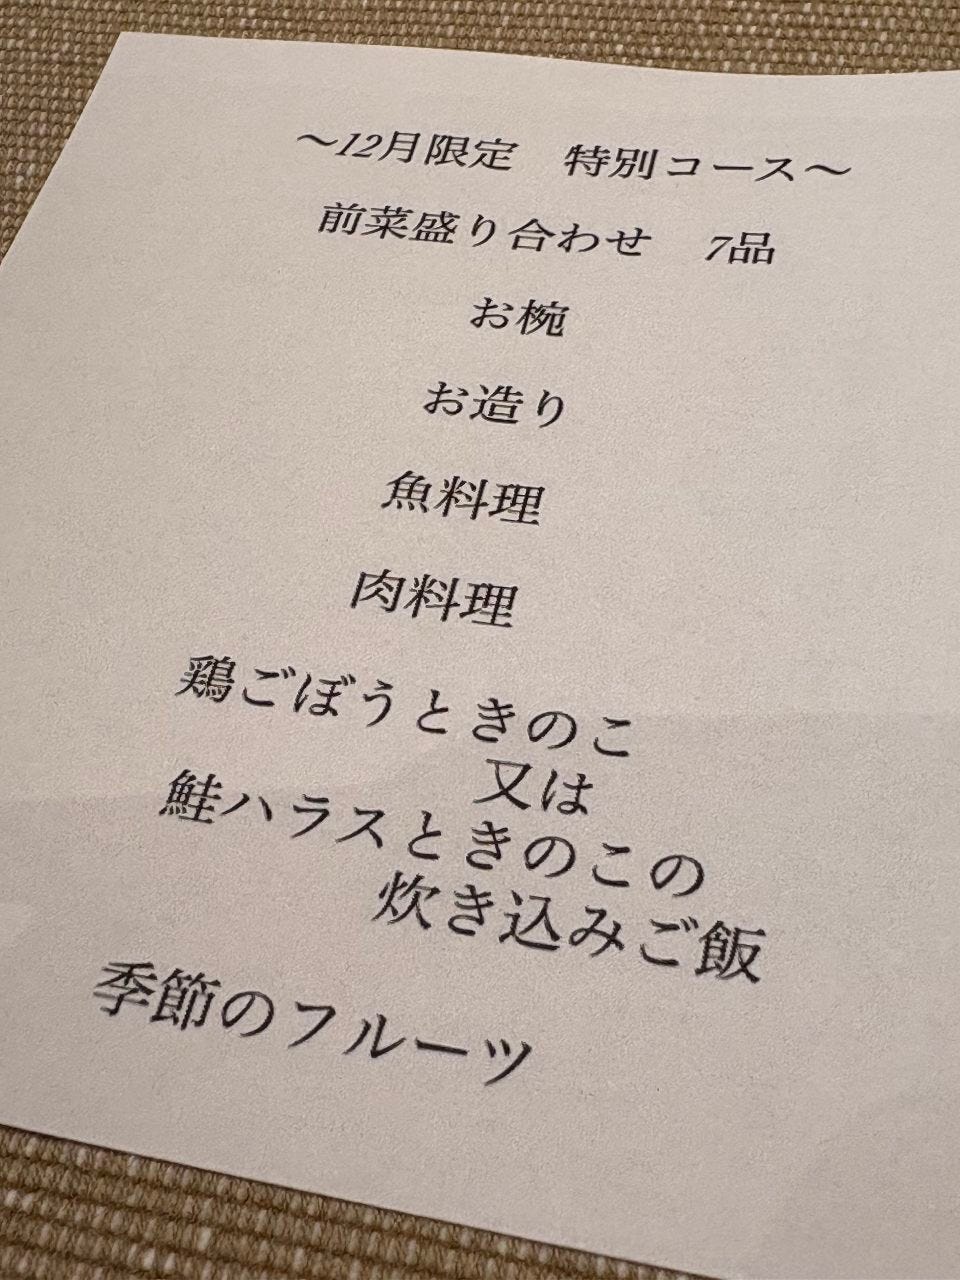 ～12月限定　特別コース～
前菜盛り合わせ　7品
お椀
お造り
魚料理
肉料理
鶏ごぼうときのこ
又は
鮭ハラスときのこの
炊き込みご飯
季節のフルーツ